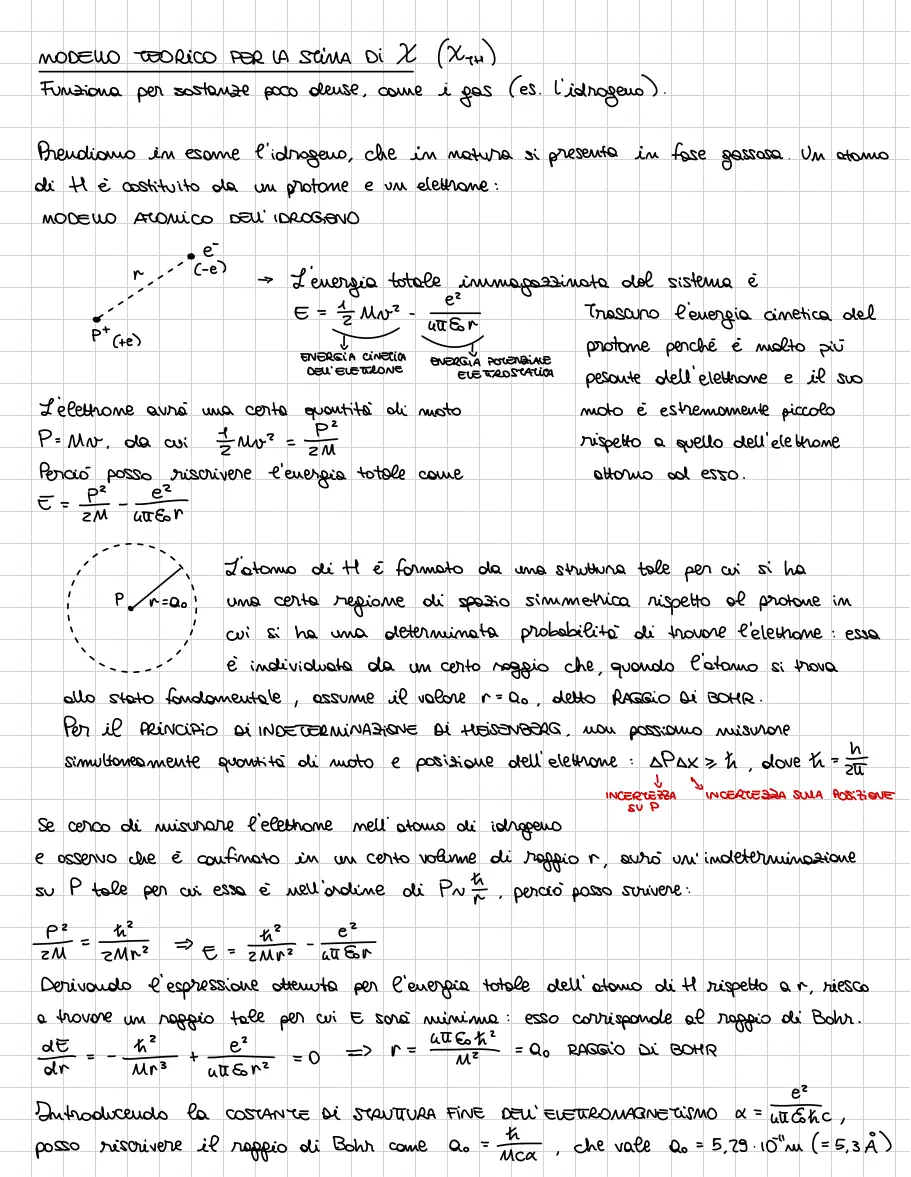 MODELLO TEORICO PER LA STIMA DI χ (χTH)
Funziona per sostanze poco dense, come i gas (es. l'idrogeno).
Prendiamo in esame l'idrogeno, che in natura si presenta in fase gassosa. Un atomo
di H è costituito da un protone e un elettrone:
MODELLO ATOMICO DELL'IDROGENO
e⁻
(-e)
r
P⁺ (+e)
→ L'energia totale immagazzinata dal sistema è
E = 1/2 Mv² - e²/4πε₀r
ENERGIA CINETICA
DELL'ELETTRONE
ENERGIA POTENZIALE
ELETTROSTATICA
Trascuro l'energia cinetica del
protone perché è molto più
pesante dell'elettrone e il suo
moto è estremamente piccolo
rispetto a quello dell'elettrone
attorno ad esso.
L'elettrone avrà una certa quantità di moto
P = Mv, da cui 1/2 Mv² = P²/2M
Perciò posso riscrivere l'energia totale come
E = P²/2M - e²/4πε₀r
P r=a₀
L'atomo di H è formato da una struttura tale per cui si ha
una certa regione di spazio simmetrica rispetto al protone in
cui si ha una determinata probabilità di trovare l'elettrone: essa
è individuata da un certo raggio che, quando l'atomo si trova
allo stato fondamentale, assume il valore r = a₀, detto RAGGIO DI BOHR.
Per il PRINCIPIO DI INDETERMINAZIONE DI HEISENBERG, non possiamo misurare
simultaneamente quantità di moto e posizione dell'elettrone: ΔPΔx ≥ ħ, dove ħ = h/2π
INCERTEZZA
SU P
INCERTEZZA SULLA POSIZIONE
Se cerco di misurare l'elettrone nell'atomo di idrogeno
e osservo che è confinato in un certo volume di raggio r, avrò un'indeterminazione
su P tale per cui essa è nell'ordine di P~ ħ/r, perciò posso scrivere:
P²/2M = ħ²/2Mr² ⇒ E = ħ²/2Mr² - e²/4πε₀r
Derivando l'espressione ottenuta per l'energia totale dell'atomo di H rispetto a r, riesco
a trovare un raggio tale per cui E sarà minima: esso corrisponde al raggio di Bohr.
dE/dr = - ħ²/Mr³ + e²/4πε₀r² = 0 ⇒ r = 4πε₀ħ²/M² = a₀ RAGGIO DI BOHR
Introducendo la COSTANTE DI STRUTTURA FINE DELL'ELETTROMAGNETISMO α = e²/4πε₀ħc,
posso riscrivere il raggio di Bohr come a₀ = ħ/Mcα, che vale a₀ = 5,29·10⁻¹¹m (=5,3Å)